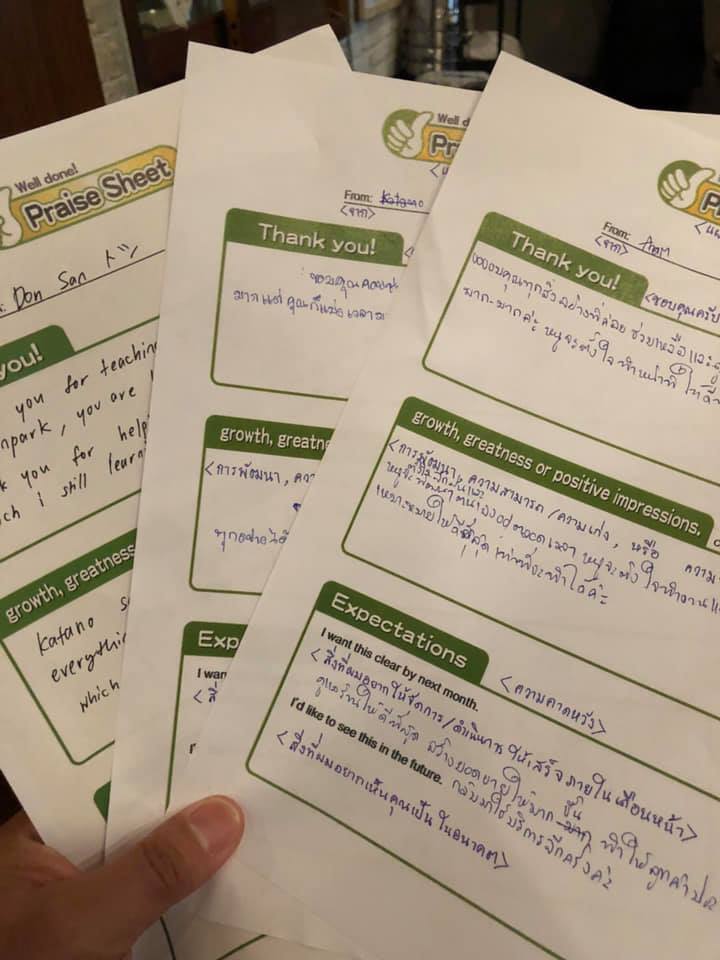 Well done!
Praise Sheet
Don San ドン
you!
you for teaching
npark, you are
you for help
ch i still learn
growth, greatness
katano
everythin
which
Well do
Pr
From: Katano
<จาก>
Thank you!
ขอบคุณ
มาก แต่คุณก็แบ่งเวลามา
growth, greatne
<การพัฒนา, ความ
ทุกอย่างได้
Exp
I wan
<สิ่
I'd
From:
<จาก>
Thank you!
<ขอบคุณครับ
ขอขอบคุณทุกสิ่งอย่างที่คอยช่วยเหลือและดู
มากๆค่ะ หนูจะตั้งใจทำหน้าที่ให้ดี
growth, greatness or positive impressions.
<การพัฒนา, ความสามารถ/ความเก่ง, หรือ ความ
หนูจะพัฒนาตนเองตลอดเวลา หนูจะตั้งใจทำงาน
ให้ดีที่สุด เท่าที่จะทำได้ค่ะ
Expectations
<ความคาดหวัง>
I want this clear by next month.
<สิ่งที่ผมอยากให้จัดการ/ดำเนินการ ให้เสร็จภายในเดือนหน้า>
ดูแลร้านให้ดีที่สุด สร้างยอดขายให้มากขึ้น ทำให้ลูกค้า
I'd like to see this in the future.
กลับมาใช้บริการอีกครั้งค่ะ
<สิ่งที่ผมอยากเห็นคุณเป็น ในอนาคต>